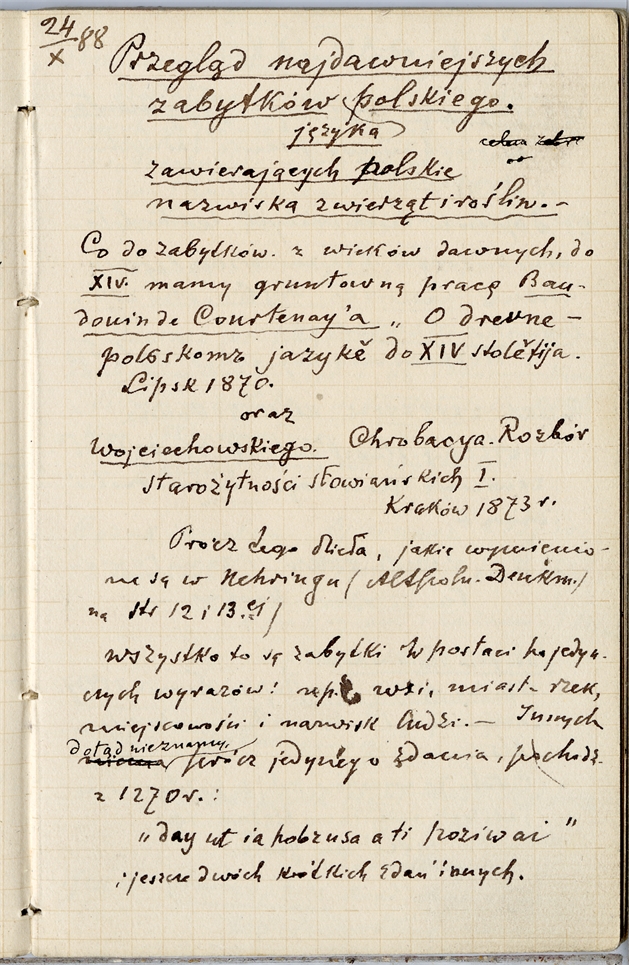 24/X 88
Przegląd najdawniejszych
zabytków polskiego.
języka
zawierających polskie
nazwiska zwierząt i roślin. –
Co do zabytków. z wieków dawnych, do
XIV. mamy gruntowną pracę Bau-
douin de Courtenay'a „O drevne –
polьskomъ jazykě do XIV stolětija.
Lipsk 1870.
oraz
Wojciechowskiego. Chrobacya. Rozbór
starożytności słowiańskich I.
Kraków 1873 r.
Prócz tego dzieła, jakie wymienio-
ne są w Nehringu / Altpoln. Denkm./
na str 12 i 13.ej /
wszystko to są zabytki w postaci pojedyn-
czych wyrazów! np. wsi, miast – rzek,
miejscowości i nazwisk ludzi. – Innych
dotąd nieznamy,
prócz jedynego zdania, pochodz.
z 1270 r. :
„day ut ia pobrusa a ti poziwai"
i jeszcze dwóch krótkich zdań innych.